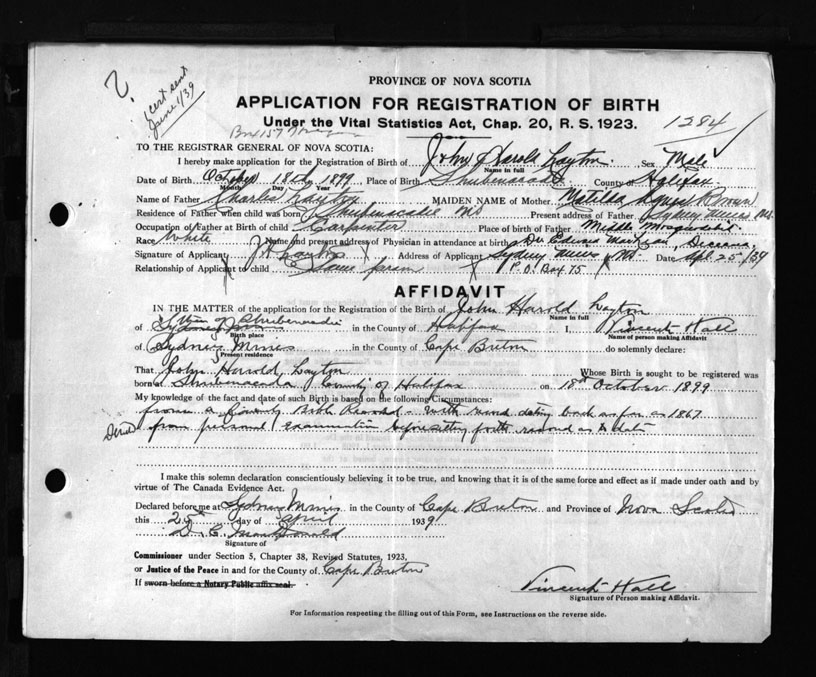 2.
cert sent
June 1/39
PROVINCE OF NOVA SCOTIA
APPLICATION FOR REGISTRATION OF BIRTH
Under the Vital Statistics Act, Chap. 20, R. S. 1923.
1284
Box 157
TO THE REGISTRAR GENERAL OF NOVA SCOTIA:
I hereby make application for the Registration of Birth of John Harold Layton. Sex Male
Name in full
Date of Birth October 18th 1899 Place of Birth Shubenacadie County of Halifax
Month Day Year
Name of Father Charles Layton MAIDEN NAME of Mother Matilda Agnes Brown
Residence of Father when child was born Shubenacadie NS Present address of Father Sydney Mines N.S.
Occupation of Father at Birth of Child Carpenter Place of birth of Father Middle Musquodoboit
Race White Name and present address of Physician in attendance at birth Dr Edward
Signature of Applicant J H Layton Address of Applicant Sydney Mines NS. Date Apl. 25/39
Relationship of Applicant to child Same person P.O. Box 75
AFFIDAVIT
IN THE MATTER of the application for the Registration of the Birth of John Harold Layton
Name in full
of Shubenacadie in the County of Halifax I, Vincent Hall
Birth place Name of person making Affidavit
of Sydney Mines in the County of Cape Breton do solemnly declare:
Present residence
That John Harold Layton Whose Birth is sought to be registered was
born at Shubenacadia County of Halifax on 18th October 1899
My knowledge of the fact and date of such Birth is based on the following Circumstances:
from a Family Bible Record - with record dating back as far as 1867
from personal examination before setting forth record as to date
I make this solemn declaration conscientiously believing it to be true, and knowing that it is of the same force and effect as if made under oath and by
virtue of The Canada Evidence Act.
Declared before me at Sydney Mines in the County of Cape Breton and Province of Nova Scotia
this 25th day of April 1939
Signature of
Commissioner under Section 5, Chapter 38, Revised Statutes, 1923,
or Justice of the Peace in and for the County of Cape Breton
If sworn before a Notary Public affix seal.
Vincent Hall
Signature of Person making Affidavit.
For Information respecting the filling out of this Form, see Instructions on the reverse side.